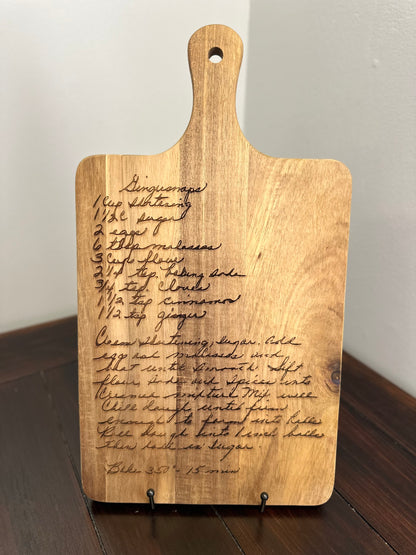 Gingersnaps
1 Cup shortening
1 1/2 C sugar
2 eggs
6 tbsp molasses
3 Cups flour
2 1/4 tsp. baking soda
3/4 tsp. Cloves
1 1/2 tsp cinnamon
1 1/2 tsp ginger
Cream shortening, sugar. Add
egg and molasses and
beat until smooth. Sift
flour soda and spices into
Creamed mixture Mix well
Chill dough until firm
enough to form into balls
Roll dough into 1 inch balls
then roll in sugar.
Bake 350° - 15 min